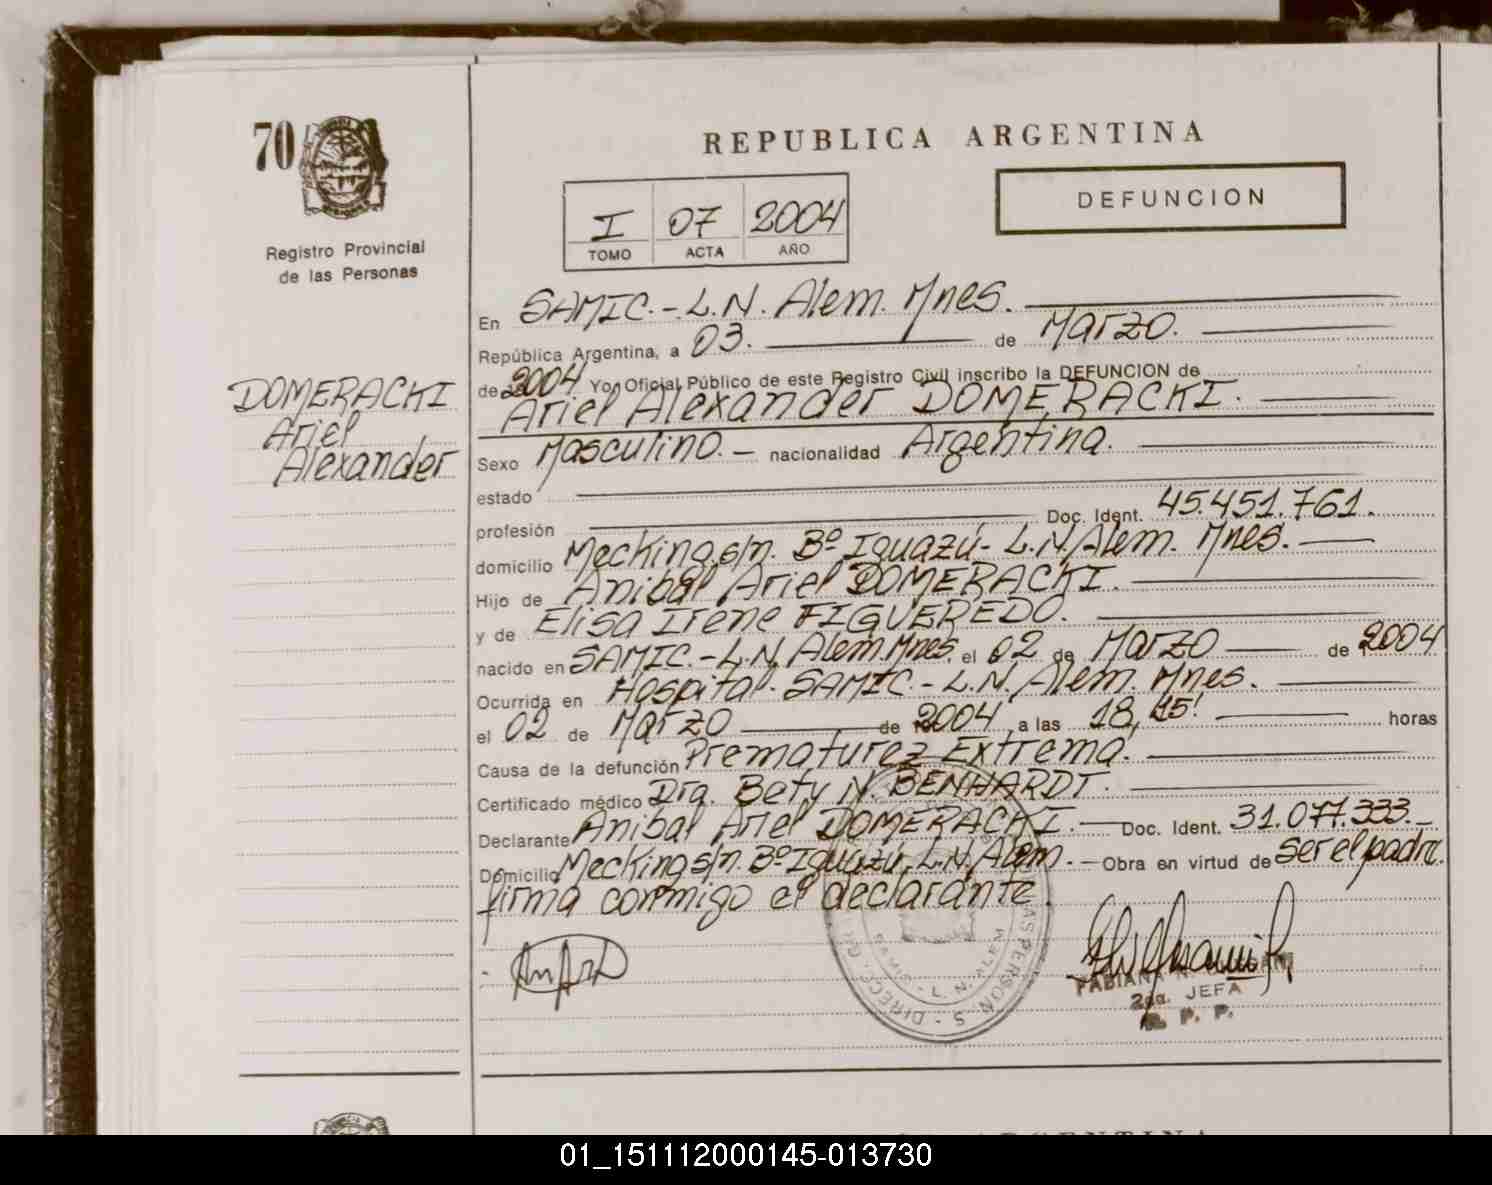 70
REPUBLICA ARGENTINA
DEFUNCION
I 07 2004
TOMO ACTA AÑO
Registro Provincial
de las Personas
DOMERACKI
Ariel
Alexander
En SAMIC.-L.N. Alem. Mnes.
República Argentina, a 03. de Marzo.
de 2004 Yo, Oficial Público de este Registro Civil inscribo la DEFUNCION de
Ariel Alexander DOMERACKI.
Sexo Masculino.- nacionalidad Argentina.
estado
profesión Doc. Ident. 45.451.761.
domicilio Mecking s/n. Bº Iguazú- L.N. Alem. Mnes.
Hijo de Anibal Ariel DOMERACKI.
y de Elisa Irene FIGUEREDO.
nacido en SAMIC.-L.N. Alem. Mnes. el 02 de Marzo de 2004
Ocurrida en Hospital. SAMIC.-L.N. Alem. Mnes.
el 02 de Marzo de 2004, a las 18,45' horas
Causa de la defunción Prematurez Extrema.
Certificado médico Dra. Bety N. BENHARDT.
Declarante Anibal Ariel DOMERACKI.- Doc. Ident. 31.077.333.-
Domicilio Mecking s/n. Bº Iguazú, L.N. Alem.- Obra en virtud de ser el padre.
firma conmigo el declarante.
2da. JEFA
R. P. P.
L. N. ALEM
01_151112000145-013730